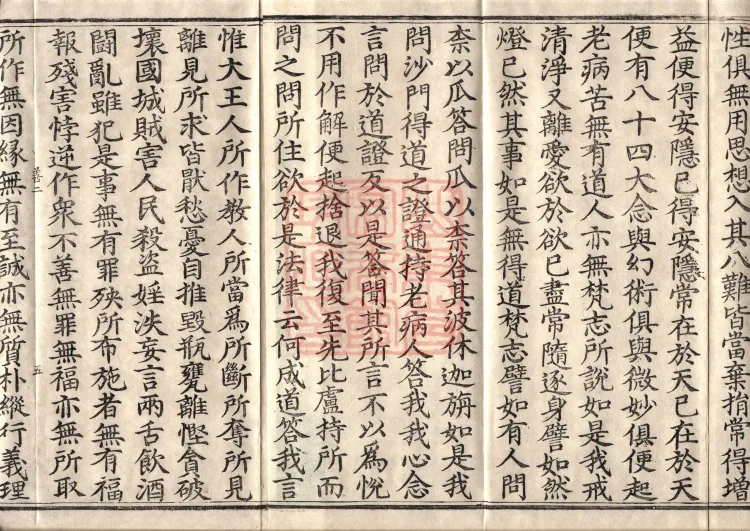 性俱無用思想入其八難皆當棄捐常得增
益便得安隱已得安隱常在於天已在於天
便有八十四大念與幻術俱與微妙俱便起
老病苦無有道人亦無梵志所說如是我戒
清淨又離愛欲於欲已盡常隨逐身譬如然
燈已然其事如是無得道梵志譬如有人問
柰以瓜答問瓜以柰答其波休迦旃如是我
問沙門得道之證通持老病人答我我心念
言問於道證反以是答聞其所言不以為悅
不用作解便起捨退我復至先比盧持所而
問之問所住欲於是法律云何成道答我言
惟大王人所作教人所當為所斷所奪所見
離見所求皆猒愁憂自推毀瓶甕離慳貪破
壞國城賊害人民殺盜婬泆妄言兩舌飲酒
鬪亂雖犯是事無有罪殃所布施者無有福
報殘害悖逆作衆不善無罪無福亦無所取
善二
五
所作無因緣無有至誠亦無質朴縱行義理